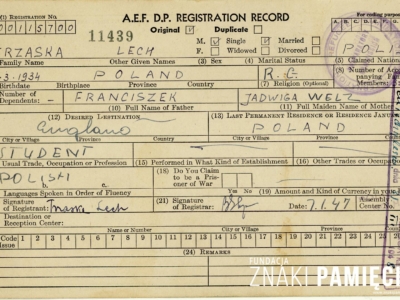 (1) REGISTRATION NO.
00115700
11439
A.E.F. D.P. REGISTRATION RECORD
Original Duplicate
M. Single Married
F. Widowed Divorced
TRZASKA LECH
POLIS
Family Name Other Given Names (3) Sex (4) Marital Status (5) Claimed Nation
3.1934 POLAND R.C.
Birthdate Birthplace Province Country (7) Religion (Optional) (8) Number of Acc panying Fam Members
Number of Dependents- — FRANCISZEK JADWIGA WELZ
(10) Full Name of Father (11) Full Maiden Name of Mother
(12) DESIRED DESTINATION (13) LAST PERMANENT RESIDENCE OR RESIDENCE JANUA
England POLAND
City or Village Province Country City or Village Province Country
STUDENT
Usual Trade, Occupation or Profession (15) Performed in What Kind of Establishment (16) Other Trades or Occupatio
POLISH
b. c.
(18) Do You Claim to be a Prisoner of War
Yes No
Languages Spoken in Order of Fluency (19) Amount and Kind of Currency in your
(21) Signature of Registrant: Trzaska Lech
(22) Signature of Registrar:
Date: 7.1.47
Assembly Center No.
Destination or Reception Center:
Name or Number City or Village Province Country
Code for Issue 1 2 3 4 5 6 7 8 9 10 11 12 13 14 15 16 17 18 19 20 21 22 23 24 25
(24) REMARKS
FUNDACJA
ZNAKI PAMIĘCI